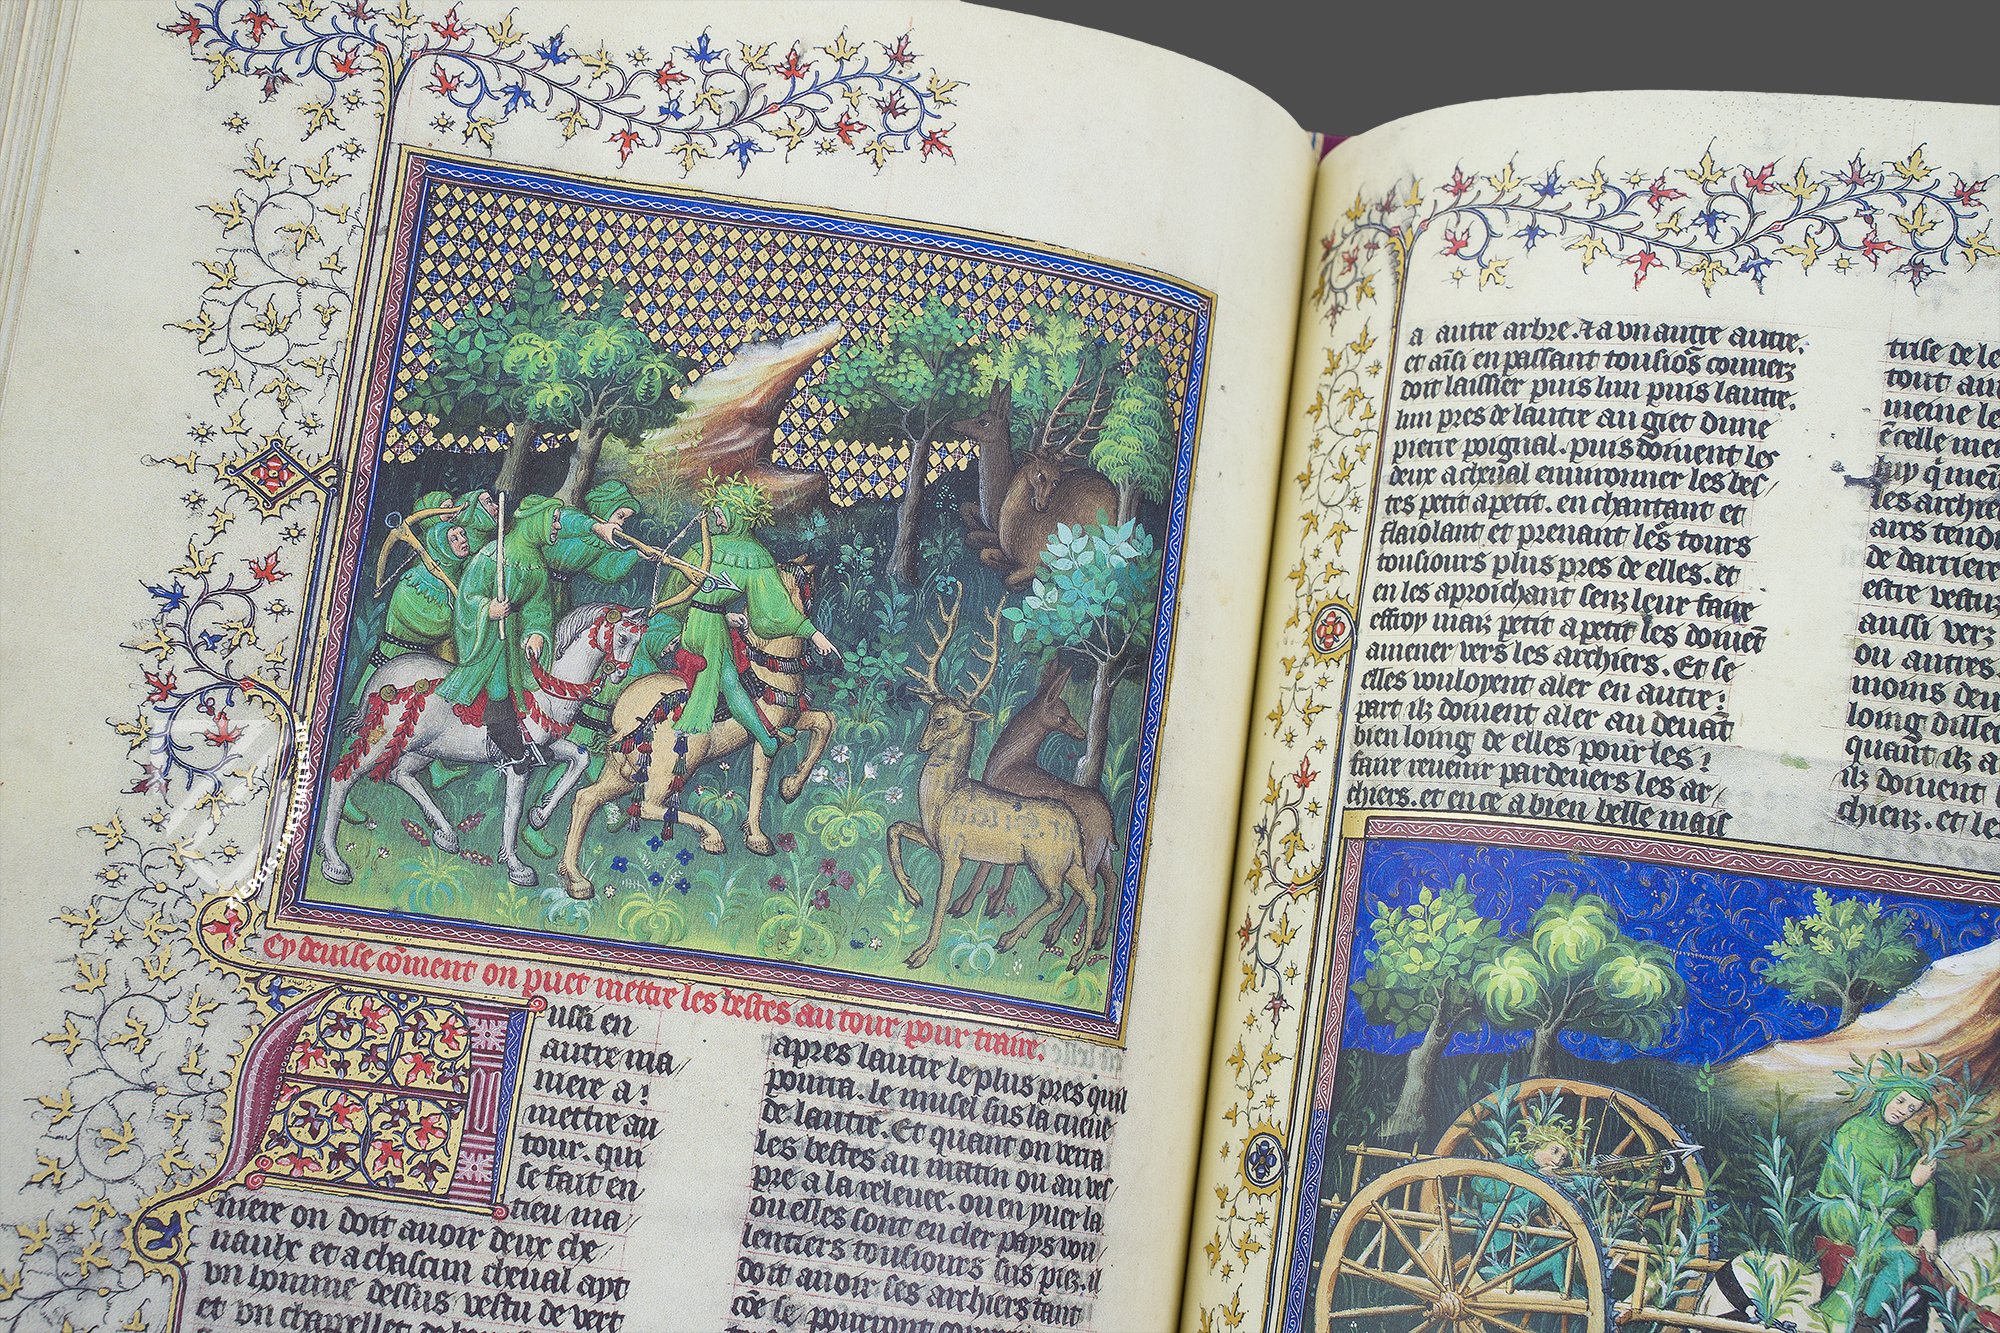 Cy deuise cõment on puet mettre les bestes au tour pour traire.
Aussi en
autre ma
niere a
mettre au
tour. qui
se fait en
tieu ma
niere on doit auoir deux che
uaulx et a chascun cheual apt
vn homme dessus vestu de vert
et vn chapellet de
apres lautre le plus pres quil
pourra. le musel sus la cueue
de lautre. Et quant on verra
les bestes au matin ou au ves
pre a la releuee. ou en yuer la
ou elles sont en cler pays vou
lentiers tousiours sus piez. il
doit auoir ses archiers tant
cõe se pourront
a autre arbre. & a vn autre autre.
et aĩsi en passant tousiõs couuerz
doit laissier puis lun puis lautre.
lun pres de lautre au giet dune
pierre poignal. puis doiuent les
deux a cheual enuironner les bes
tes petit a petit. en chantant et
flaiolant et prenant les tours
tousiours plus pres de elles. et
en les aproichant senz leur faire
effroy maiz petit a petit les doiuẽt
amener vers les archiers. Et se
elles vouloyent aler en autre
part ilz doiuent aler au deuãt
bien loing de elles pour les
faire reuenir pardeuers les ar
chiers. et en ce a bien belle mais
trise de
tout
meine
ẽ celle
luy
les archiers
airs
de darriere
estre vestuz
aussi verz
ou autres
moins
loing
quant ilz
ilz doiuent
chienz. et